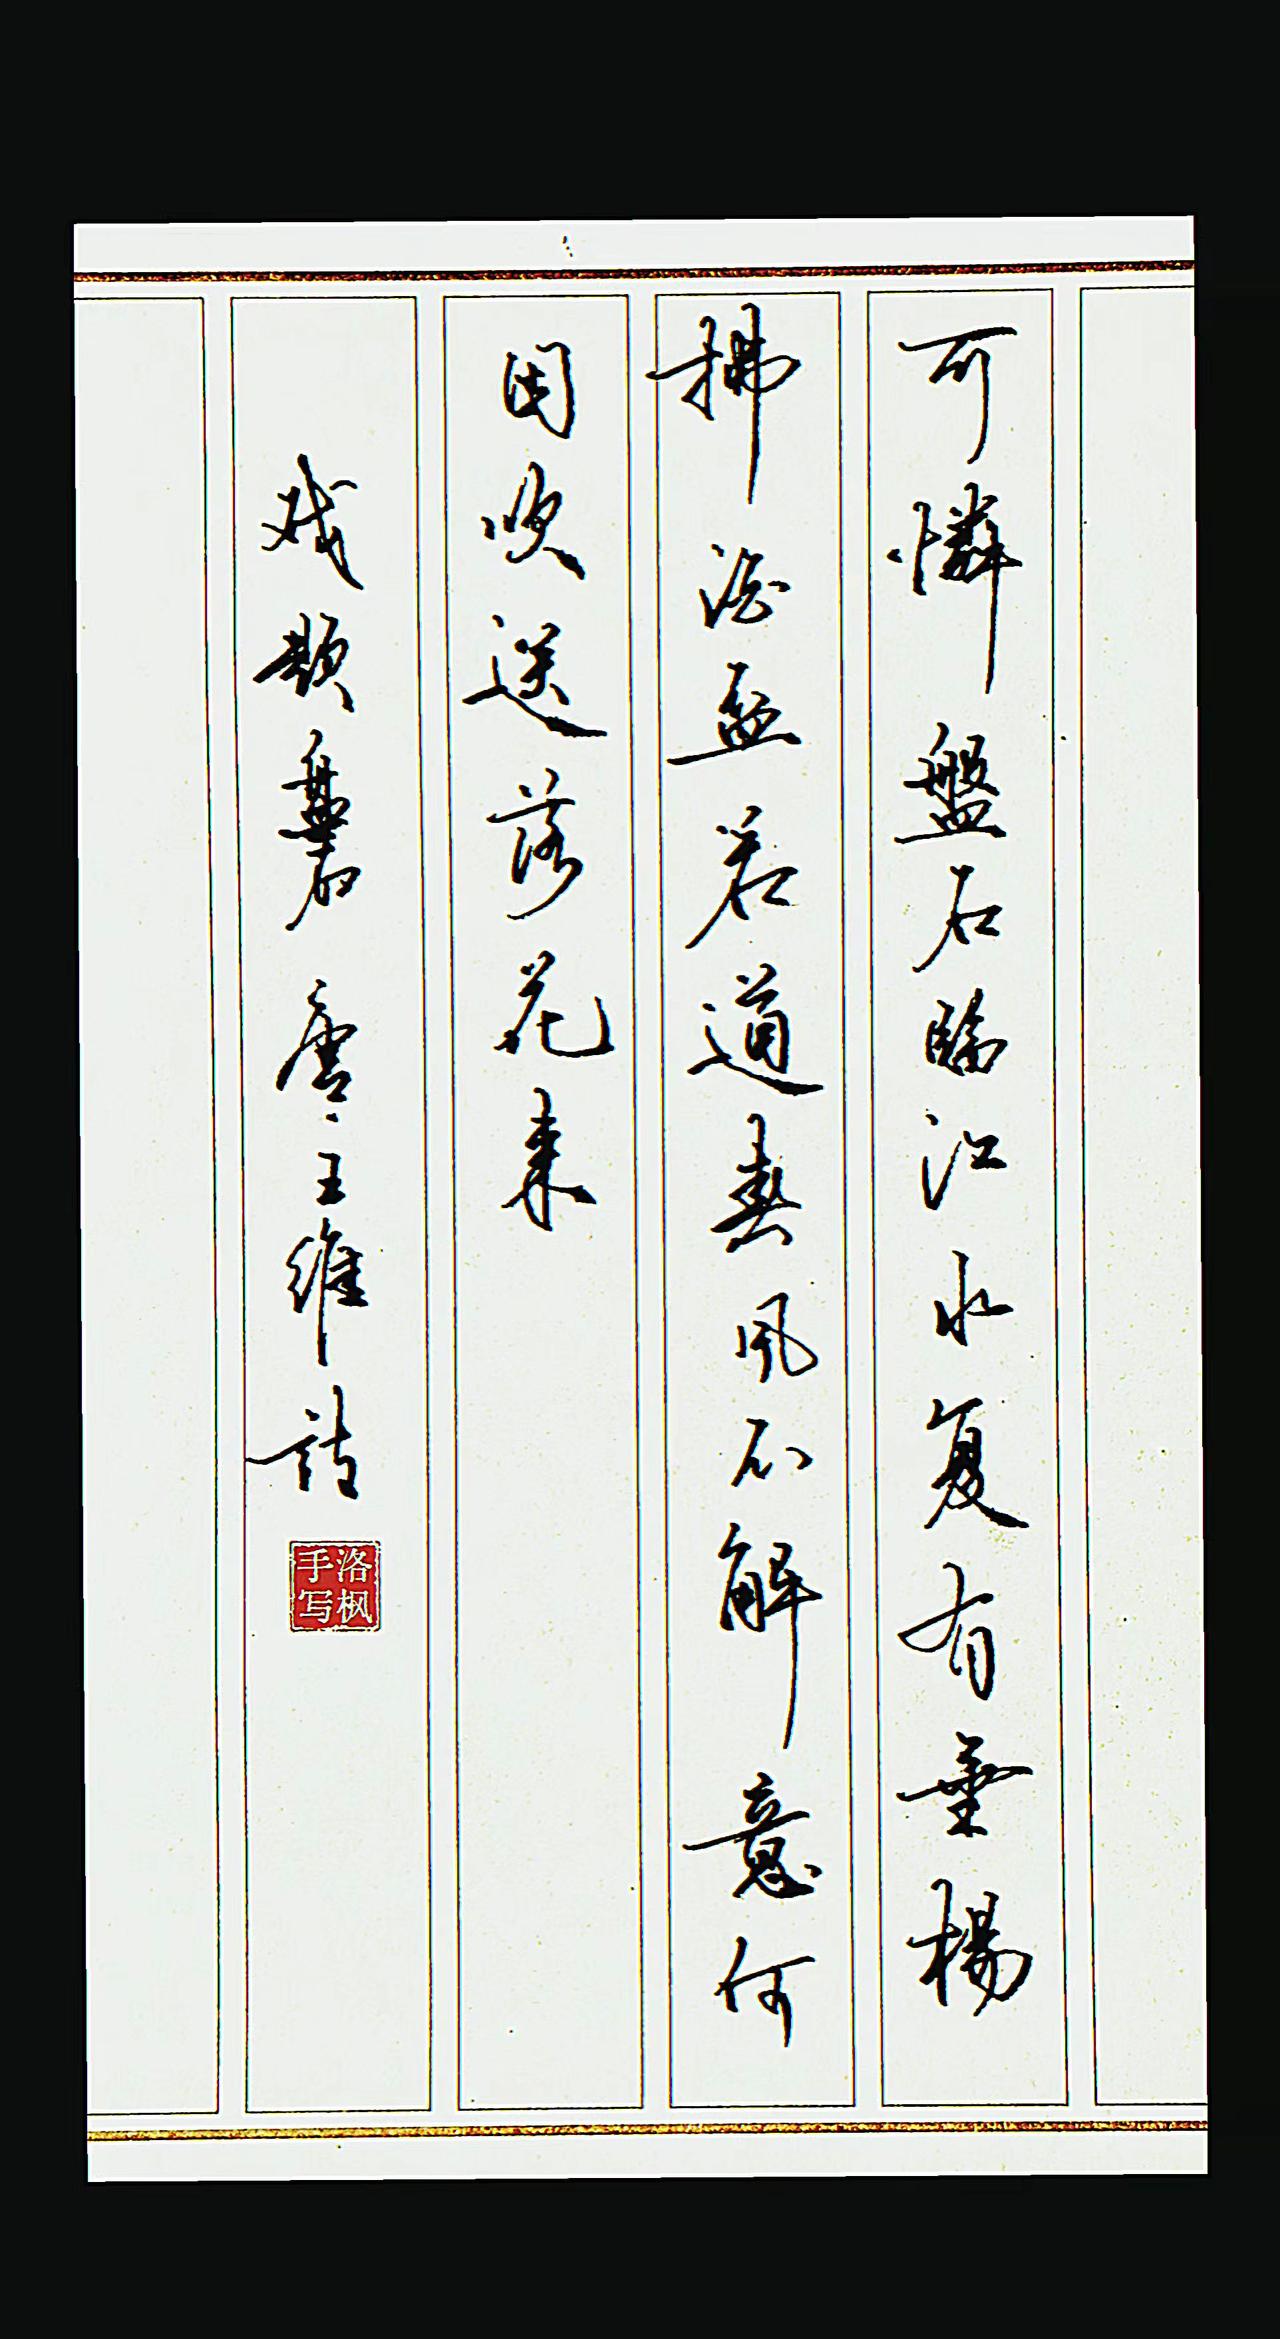 可憐盤石臨江水复有垂楊
拂酒盃若道春风不解意何
因吹送落花来
戏题盤石 唐 王維詩
洛枫手写